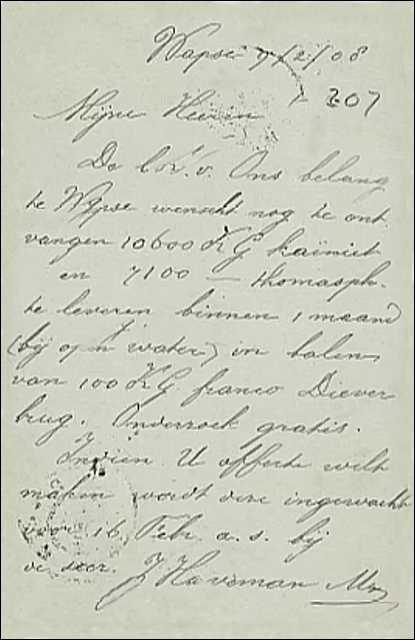 Wapse 9/2/08
207
Mijne Heeren
De l.v.v. Ons belang
te Wapse wenscht nog te ont
vangen 10600 KG kaïniet
en 7100 — thomasph.
te leveren binnen 1 maand
(bij op 't water) in balen
van 100 KG. franco Diever
brug. Onderzoek gratis.
Indien U offerte wilt
maken wordt deze ingewacht
voor 16 Febr. a. s. bij
de secr. J Haveman Mzn